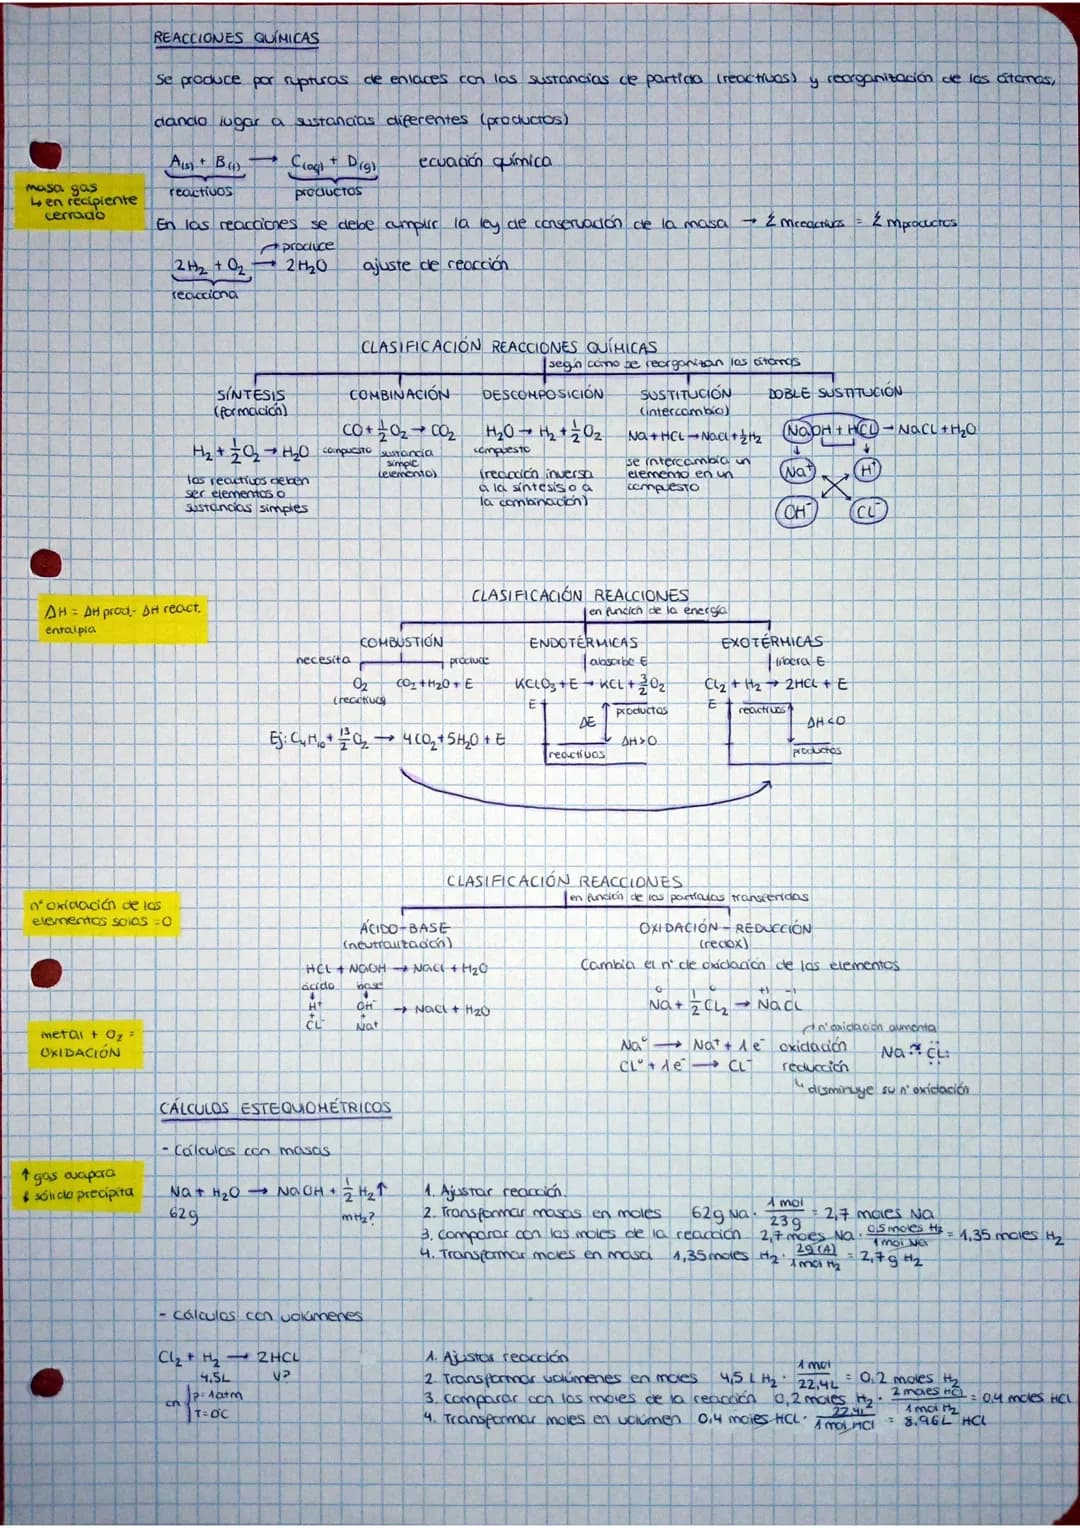 REACCIONES QUÍMICAS
Se produce por rupturas de enlaces con las sustancias de partida (reactivos) y reorganización de los átomos,
dando lugar a sustancias diferentes (productos)
A(s) + B(l) → C(aq) + D(g) ecuación química
reactivos productos
masa gas
↳ en recipiente
cerrado
En las reacciones se debe cumplir la ley de conservación de la masa → Σ mreactivos = Σ mproductos
produce
2H₂ + O₂ → 2H₂O ajuste de reacción
reacciona
CLASIFICACIÓN REACCIONES QUÍMICAS
según cómo se reorganizan los átomos
SÍNTESIS
(formación)
H₂ + ½O₂ → H₂O
los reactivos deben
ser elementos o
sustancias simples
COMBINACIÓN
CO + ½O₂ → CO₂
compuesto sustancia
simple
(elemento)
DESCOMPOSICIÓN
H₂O → H₂ + ½O₂
compuesto
(reacción inversa
a la síntesis o a
la combinación)
SUSTITUCIÓN
(intercambio)
Na + HCL → NaCl + ½H₂
se intercambia un
elemento en un
compuesto
DOBLE SUSTITUCIÓN
NaOH + HCL → NaCL + H₂O
Na⁺ H⁺
OH⁻ CL⁻
ΔH = ΔH prod. - ΔH react.
entalpía
CLASIFICACIÓN REACCIONES
en función de la energía
COMBUSTIÓN
necesita produce
O₂ CO₂ + H₂O + E
(reactivo)
Ej: C₄H₁₀ + 13/2 O₂ → 4CO₂ + 5H₂O + E
ENDOTÉRMICAS
absorbe E
KCLO₃ + E → KCL + 3/2 O₂
E
productos
ΔE
ΔH>0
reactivos
EXOTÉRMICAS
libera E
CL₂ + H₂ → 2HCL + E
E
reactivos
ΔH<0
productos
CLASIFICACIÓN REACCIONES
en función de las partículas transferidas
nº oxidación de los
elementos solos = 0
ÁCIDO-BASE
(neutralización)
HCL + NaOH → NaCl + H₂O
ácido base
↓ ↓
H⁺ OH⁻ → NaCl + H₂O
+ +
CL⁻ Na⁺
OXIDACIÓN - REDUCCIÓN
(redox)
Cambia el nº de oxidación de los elementos
0 0 +1 -1
Na + ½CL₂ → NaCl
nº oxidación aumenta
Na⁰ → Na⁺ + 1e⁻ oxidación
CL⁰ + 1e⁻ → CL⁻ reducción
↳ disminuye su nº oxidación
Na CL
metal + O₂ =
OXIDACIÓN
CÁLCULOS ESTEQUIOMÉTRICOS
- Cálculos con masas
↑ gas evapora
↓ sólido precipita
Na + H₂O → NaOH + ½H₂↑
62g mH₂?
1. Ajustar reacción.
2. Transformar masas en moles 62g Na · 1 mol / 23g = 2,7 moles Na
3. Comparar con los moles de la reacción 2,7 moles Na · 0,5 moles H₂ / 1 mol Na = 1,35 moles H₂
4. Transformar moles en masa 1,35 moles H₂ · 2g (A) / 1 mol H₂ = 2,7g H₂
- Cálculos con volúmenes
Cl₂ + H₂ → 2HCL
4,5L V?
en P=1atm
T=0°C
1. Ajustar reacción
2. Transformar volúmenes en moles 4,5 L H₂ · 1 mol / 22,4L = 0,2 moles H₂
3. Comparar con los moles de la reacción 0,2 moles H₂ · 2 moles HCl / 1 mol H₂ = 0,4 moles HCl
4. Transformar moles en volumen 0,4 moles HCL · 22,4L / 1 mol HCl = 8,96L HCL